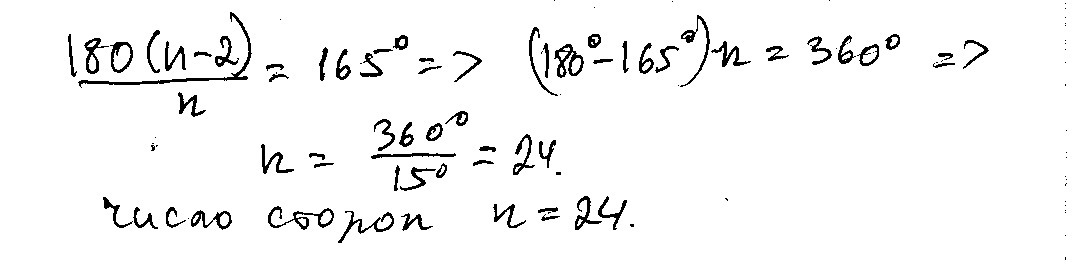 180(n-2)/n = 165° => (180°-165°)n = 360° =>
n = 360°/15° = 24.
число сторон n = 24.